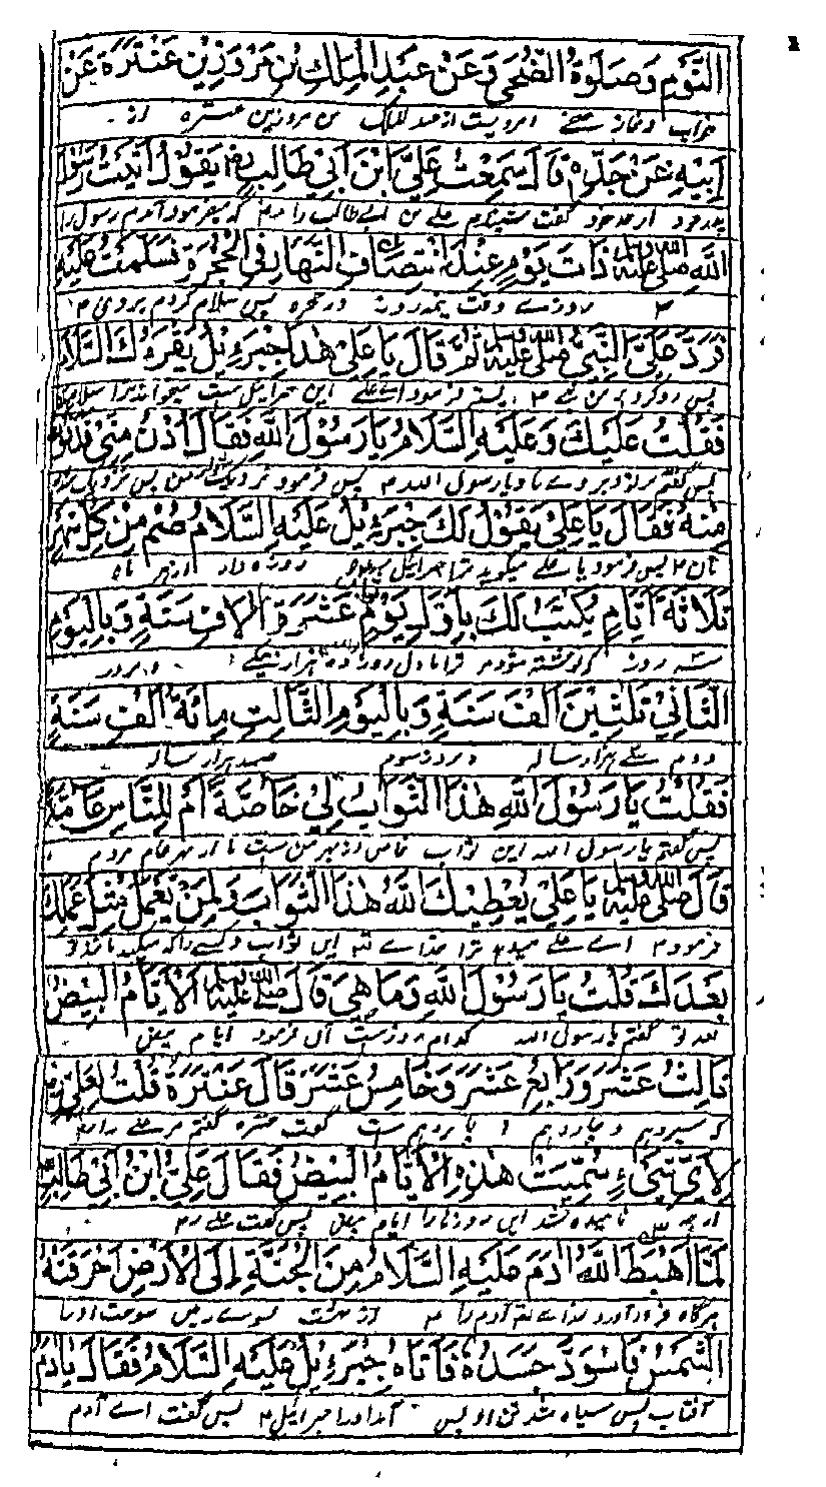 النَّوْمِ وَصَلٰوةُ الضُّحٰى وَعَنْ عَبْدِ الْمَلِكِ بْنِ هٰرُوْنَ بْنِ عَنْتَرَةَ عَنْ
خواب و نماز
اَبِيْهِ عَنْ جَدِّهٖ قَالَ سَمِعْتُ عَلِيَّ ابْنَ اَبِيْ طَالِبٍ رض يَقُوْلُ اَتَيْتُ رَسُوْلَ
پدر خود از جد خود گفت شنیدم علی بن ابی طالب را که میفرمود آمدم رسول را
اللّٰهِ صلى الله عليه وسلم ذَاتَ يَوْمٍ عِنْدَ انْتِصَافِ النَّهَارِ فِي الْحُجْرَةِ فَسَلَّمْتُ عَلَيْهِ
روزے وقت نیمه روز در حجره پس سلام کردم بروی
فَرَدَّ عَلَيَّ النَّبِيُّ صلى الله عليه وسلم ثُمَّ قَالَ يَا عَلِيُّ هٰذَا جِبْرَءِيْلُ يُقْرِءُكَ السَّلَامَ
پس رد کرد بر من نبی پستر فرمود اے علی این جبرائیل ست میخواند ترا سلام
فَقُلْتُ عَلَيْكَ وَعَلَيْهِ السَّلَامُ يَا رَسُوْلَ اللّٰهِ فَقَالَ اُدْنُ مِنِّيْ فَدَنَوْتُ
پس گفتم بر تو و بروے یا رسول الله پس فرمود نزدیک من پس نزدیک
مِنْهُ فَقَالَ يَا عَلِيُّ يَقُوْلُ لَكَ جِبْرَءِيْلُ عَلَيْهِ السَّلَامُ صُمْ مِنْ كُلِّ شَهْرٍ
پس فرمود یا علی میگوید ترا جبرائیل روزه دار از هر ماه
ثَلَاثَةَ اَيَّامٍ يُكْتَبُ لَكَ بِاَوَّلِ يَوْمٍ عَشَرَةَ اٰلَافِ سَنَةٍ وَبِالْيَوْمِ
سه روز که نوشته شود ترا باول روز ده هزار
الثَّانِيْ ثَلٰثِيْنَ اَلْفَ سَنَةٍ وَبِالْيَوْمِ الثَّالِثِ مِائَةَ اَلْفِ سَنَةٍ
دوم سی هزار ساله و بروز سوم صد هزار ساله
فَقُلْتُ يَا رَسُوْلَ اللّٰهِ هٰذَا الثَّوَابُ لِيْ خَاصَّةً اَمْ لِلنَّاسِ عَامَّةً
پس گفتم یا رسول الله این ثواب خاص از بهر من ست یا از بهر عام مردم
قَالَ صلى الله عليه وسلم يَا عَلِيُّ يُعْطِيْكَ اللّٰهُ هٰذَا الثَّوَابَ وَلِمَنْ يَعْمَلُ مِثْلَ عَمَلِكَ
فرمود اے علی ترا خداے این ثواب و کسے را که میکند
بَعْدَكَ قُلْتُ يَا رَسُوْلَ اللّٰهِ وَمَا هِيَ قَالَ صلى الله عليه وسلم اَلْاَيَّامُ الْبِيْضُ
بعد تو گفتم یا رسول الله کدام روزست آن فرمود ایام بیض
ثَالِثُ عَشَرَ وَرَابِعُ عَشَرَ وَخَامِسُ عَشَرَ قَالَ عَنْتَرَةُ قُلْتُ لِعَلِيٍّ رض
که سیزدهم و چهاردهم و پانزدهم ست گفت عنتره گفتم مر علی را
لِاَيِّ شَيْءٍ سُمِّيَتْ هٰذِهِ الْاَيَّامُ الْبِيْضُ فَقَالَ عَلِيُّ ابْنُ اَبِيْ طَالِبٍ
از چه نامیده شد این روزها را ایام بیض پس گفت علی
لَمَّا اَهْبَطَ اللّٰهُ اٰدَمَ عَلَيْهِ السَّلَامُ مِنَ الْجَنَّةِ اِلَى الْاَرْضِ اَحْرَقَتْهُ
هرگاه فرود آورد خداے آدم را از بهشت بسوے زمین سوخت او را
الشَّمْسُ فَاسْوَدَّ جَسَدُهٗ فَاَتَاهُ جِبْرَءِيْلُ عَلَيْهِ السَّلَامُ فَقَالَ يَا اٰدَمُ
آفتاب پس سیاه شد تن او پس آمد او را جبرائیل پس گفت اے آدم